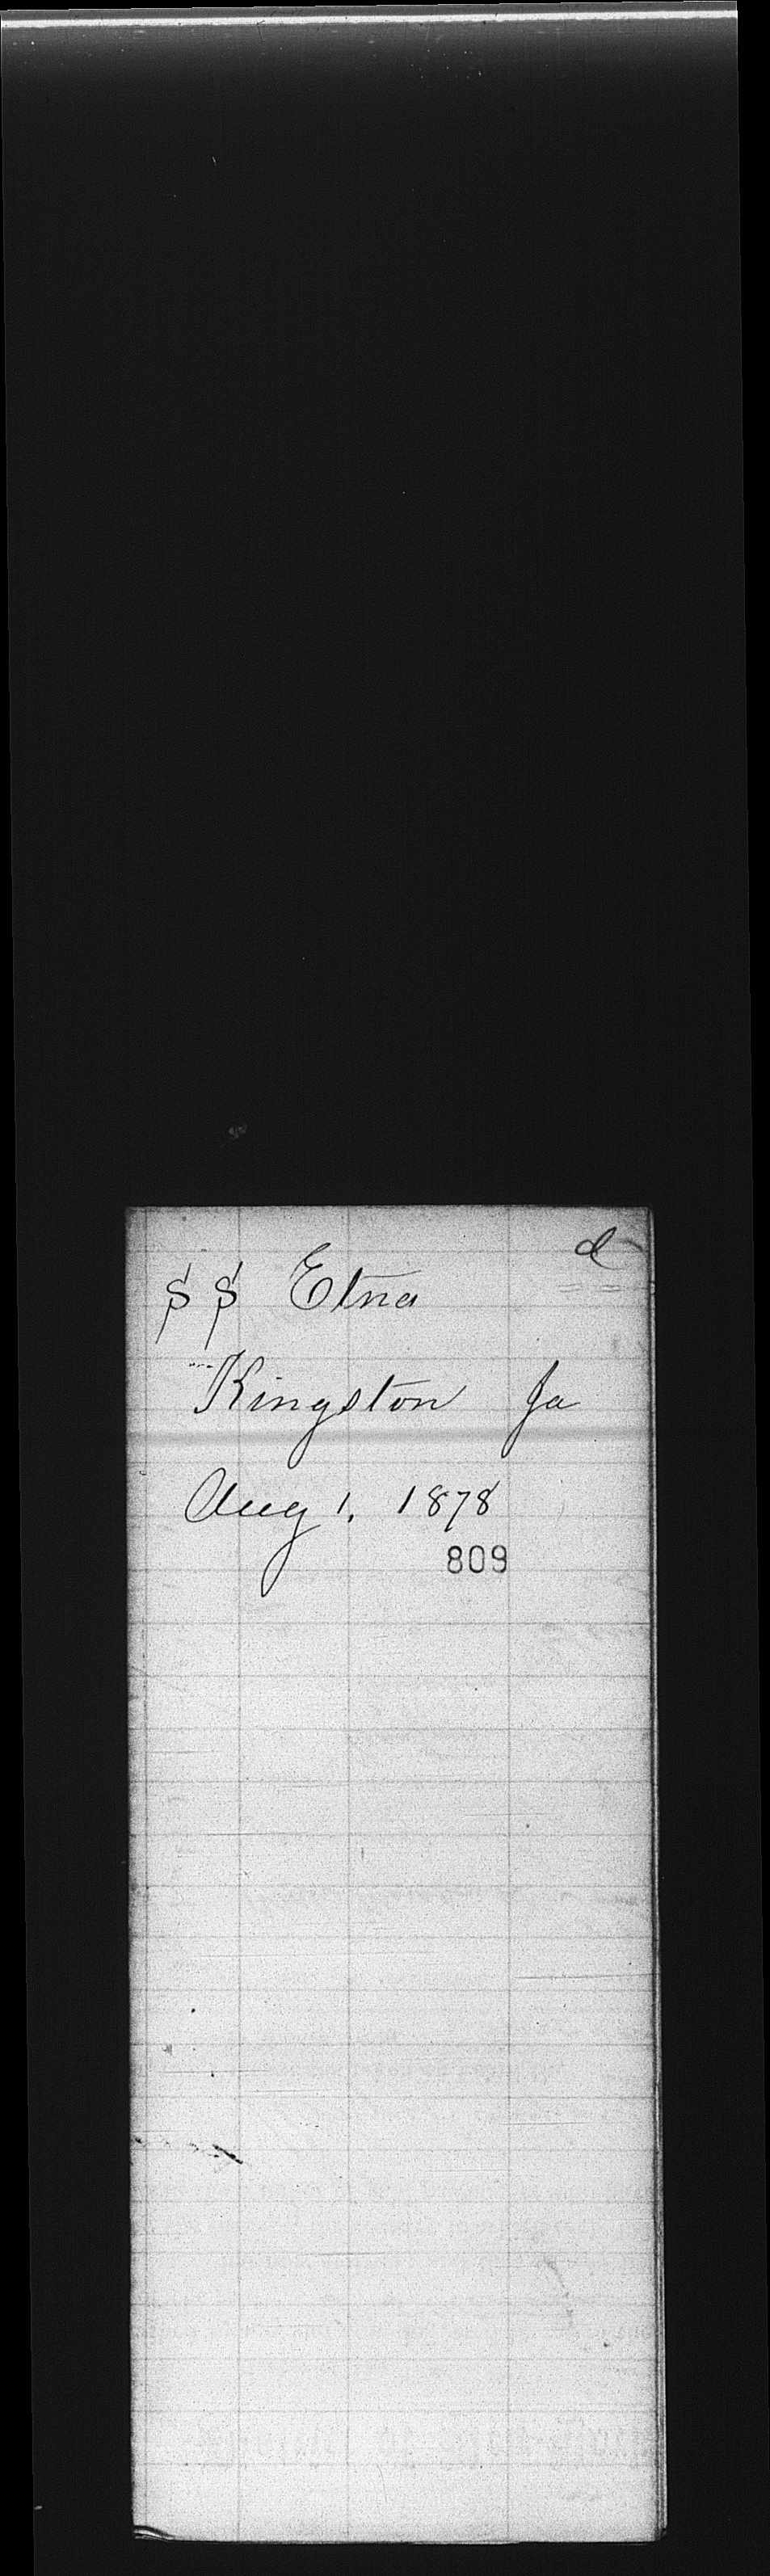 SS Etna
Kingston Ja
Aug 1, 1878
809